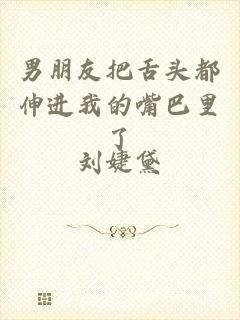 男朋友把舌头都
伸进我的嘴巴里
了
刘婕黛